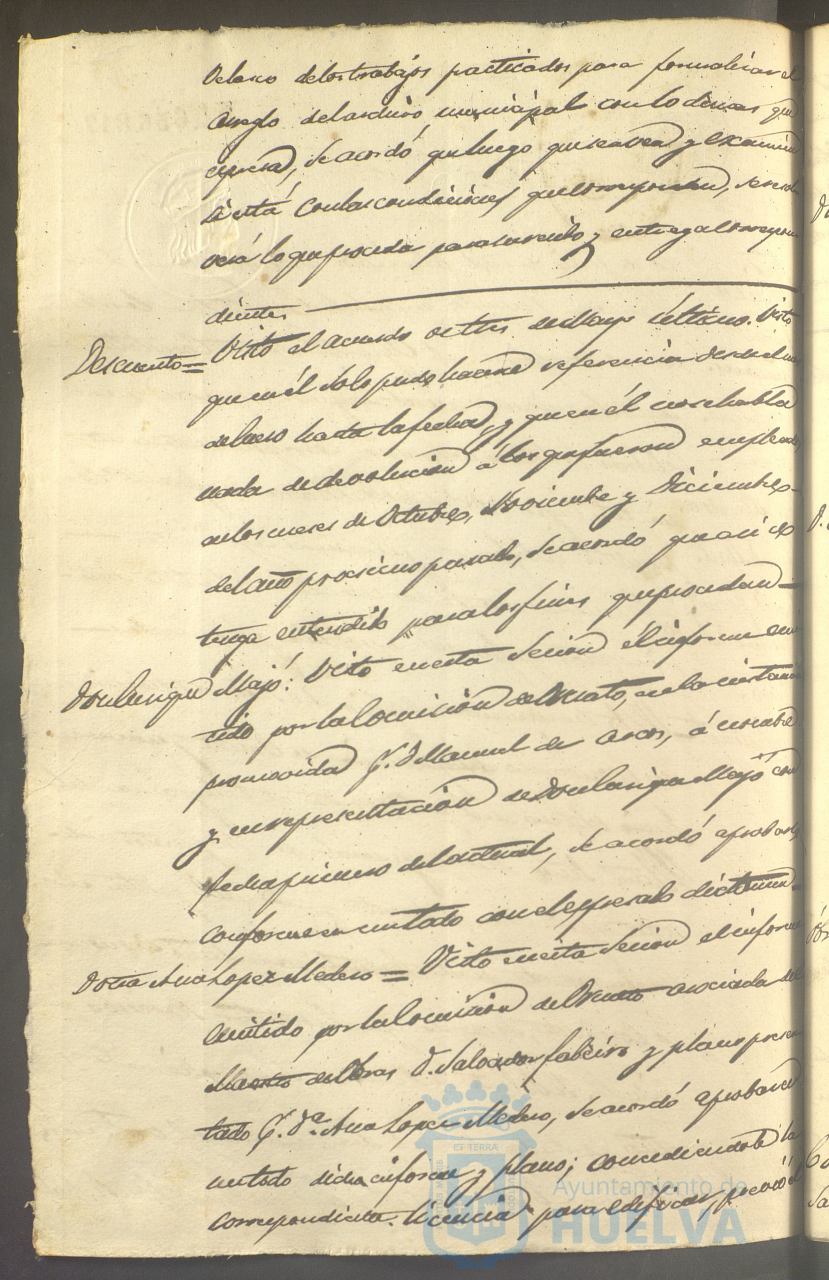 Velasco de los trabajos practicados para formalizar el
arreglo del archivo municipal con lo demas que
espresa, se acordó que luego que se vea y examine
si está con las condiciones que corresponden, se resol
verá lo que proceda para su recibo y entrega correspon
diente
Descuento = Visto el acuerdo de tres de Mayo último. Visto
que en él solo pudo hacerse referencia desde el mes
de Enero hasta la fecha, y que en él no se habla
nada de devolucion á los que fueron empleados
en los meses de Octubre, Noviembre y Diciembre
del año procsimo pasado, se acordó que asi se
tenga entendido para los fines que procedan
Don Enrique Majó: Visto en esta Sesion el informe emi
tido por la Comision de Ornato, en la instancia
promovida p.r D. Manuel de Arcos, á nombre
y en representacion de Don Enrique Majó con
fecha primero del actual, se acordó aprobarlo
conforme en un todo con el espresado dictamen
Doña Ana Lopez Medero = Visto en esta Sesion el informe
emitido por la Comision de Ornato asociada del
Maestro de Obras D. Salvador y plano presen
tado p.r D.ª Ana Lopez Medero, se acordó aprobar en
un todo dicho informe y plano; concediendole la
correspondiente licencia para edificar, previo el
EX TERRA
Ayuntamiento de
HUELVA